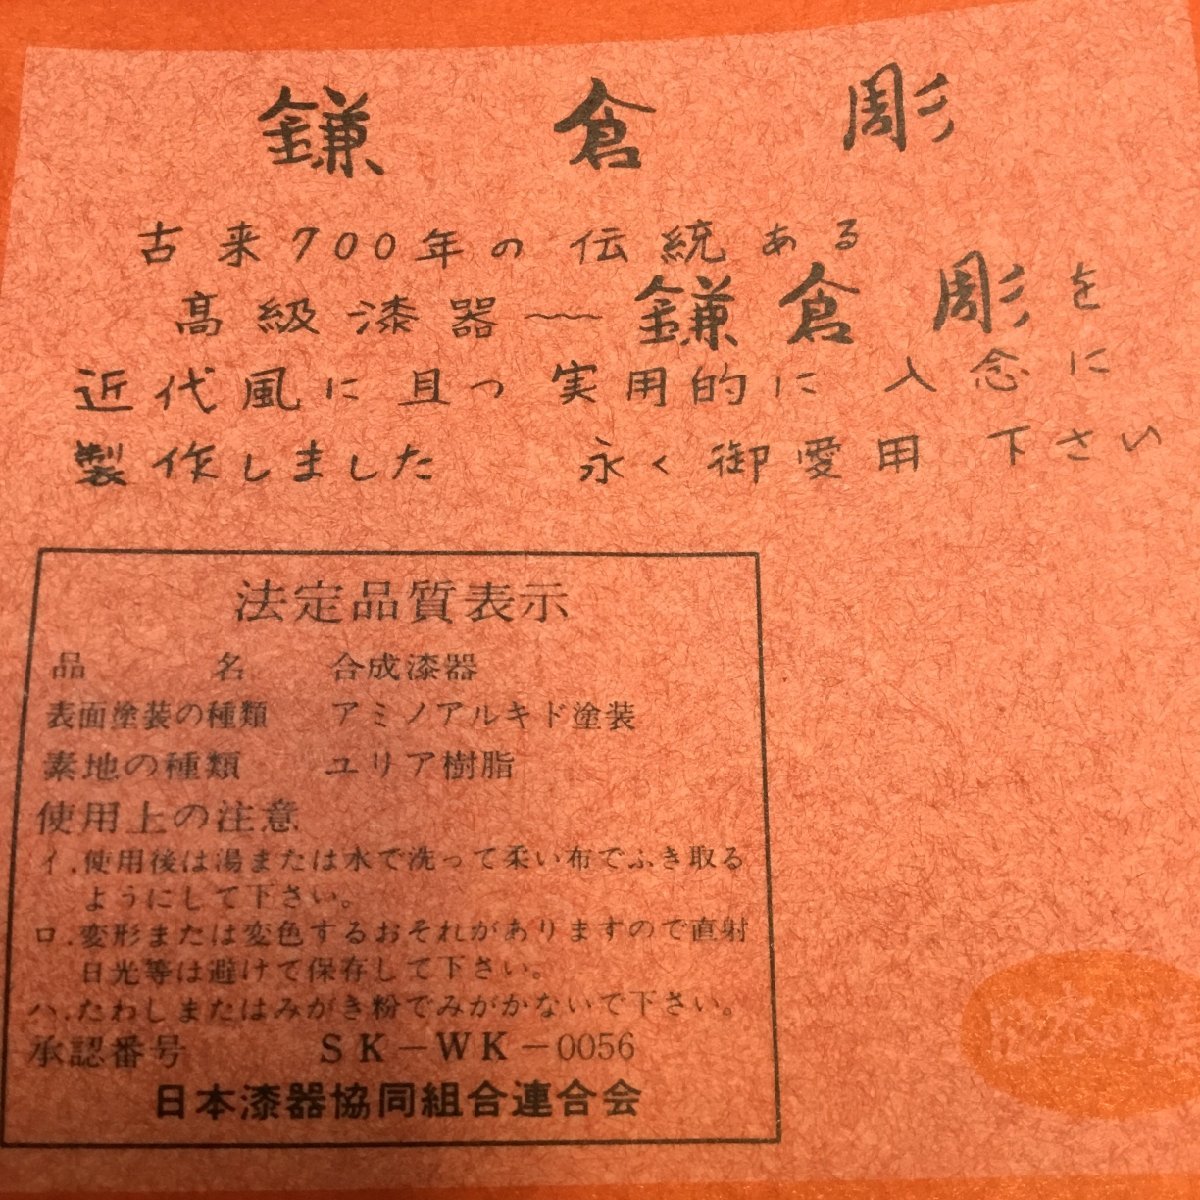 鎌倉彫
古来700年の伝統ある
高級漆器〜鎌倉彫を
近代風に且つ実用的に入念に
製作しました 永く御愛用下さい
法定品質表示
品名 合成漆器
表面塗装の種類 アミノアルキド塗装
素地の種類 ユリア樹脂
使用上の注意
イ.使用後は湯または水で洗って柔い布でふき取る
ようにして下さい。
ロ.変形または変色するおそれがありますので直射
日光等は避けて保存して下さい。
ハ.たわしまたはみがき粉でみがかないで下さい。
承認番号 SK-WK-0056
日本漆器協同組合連合会